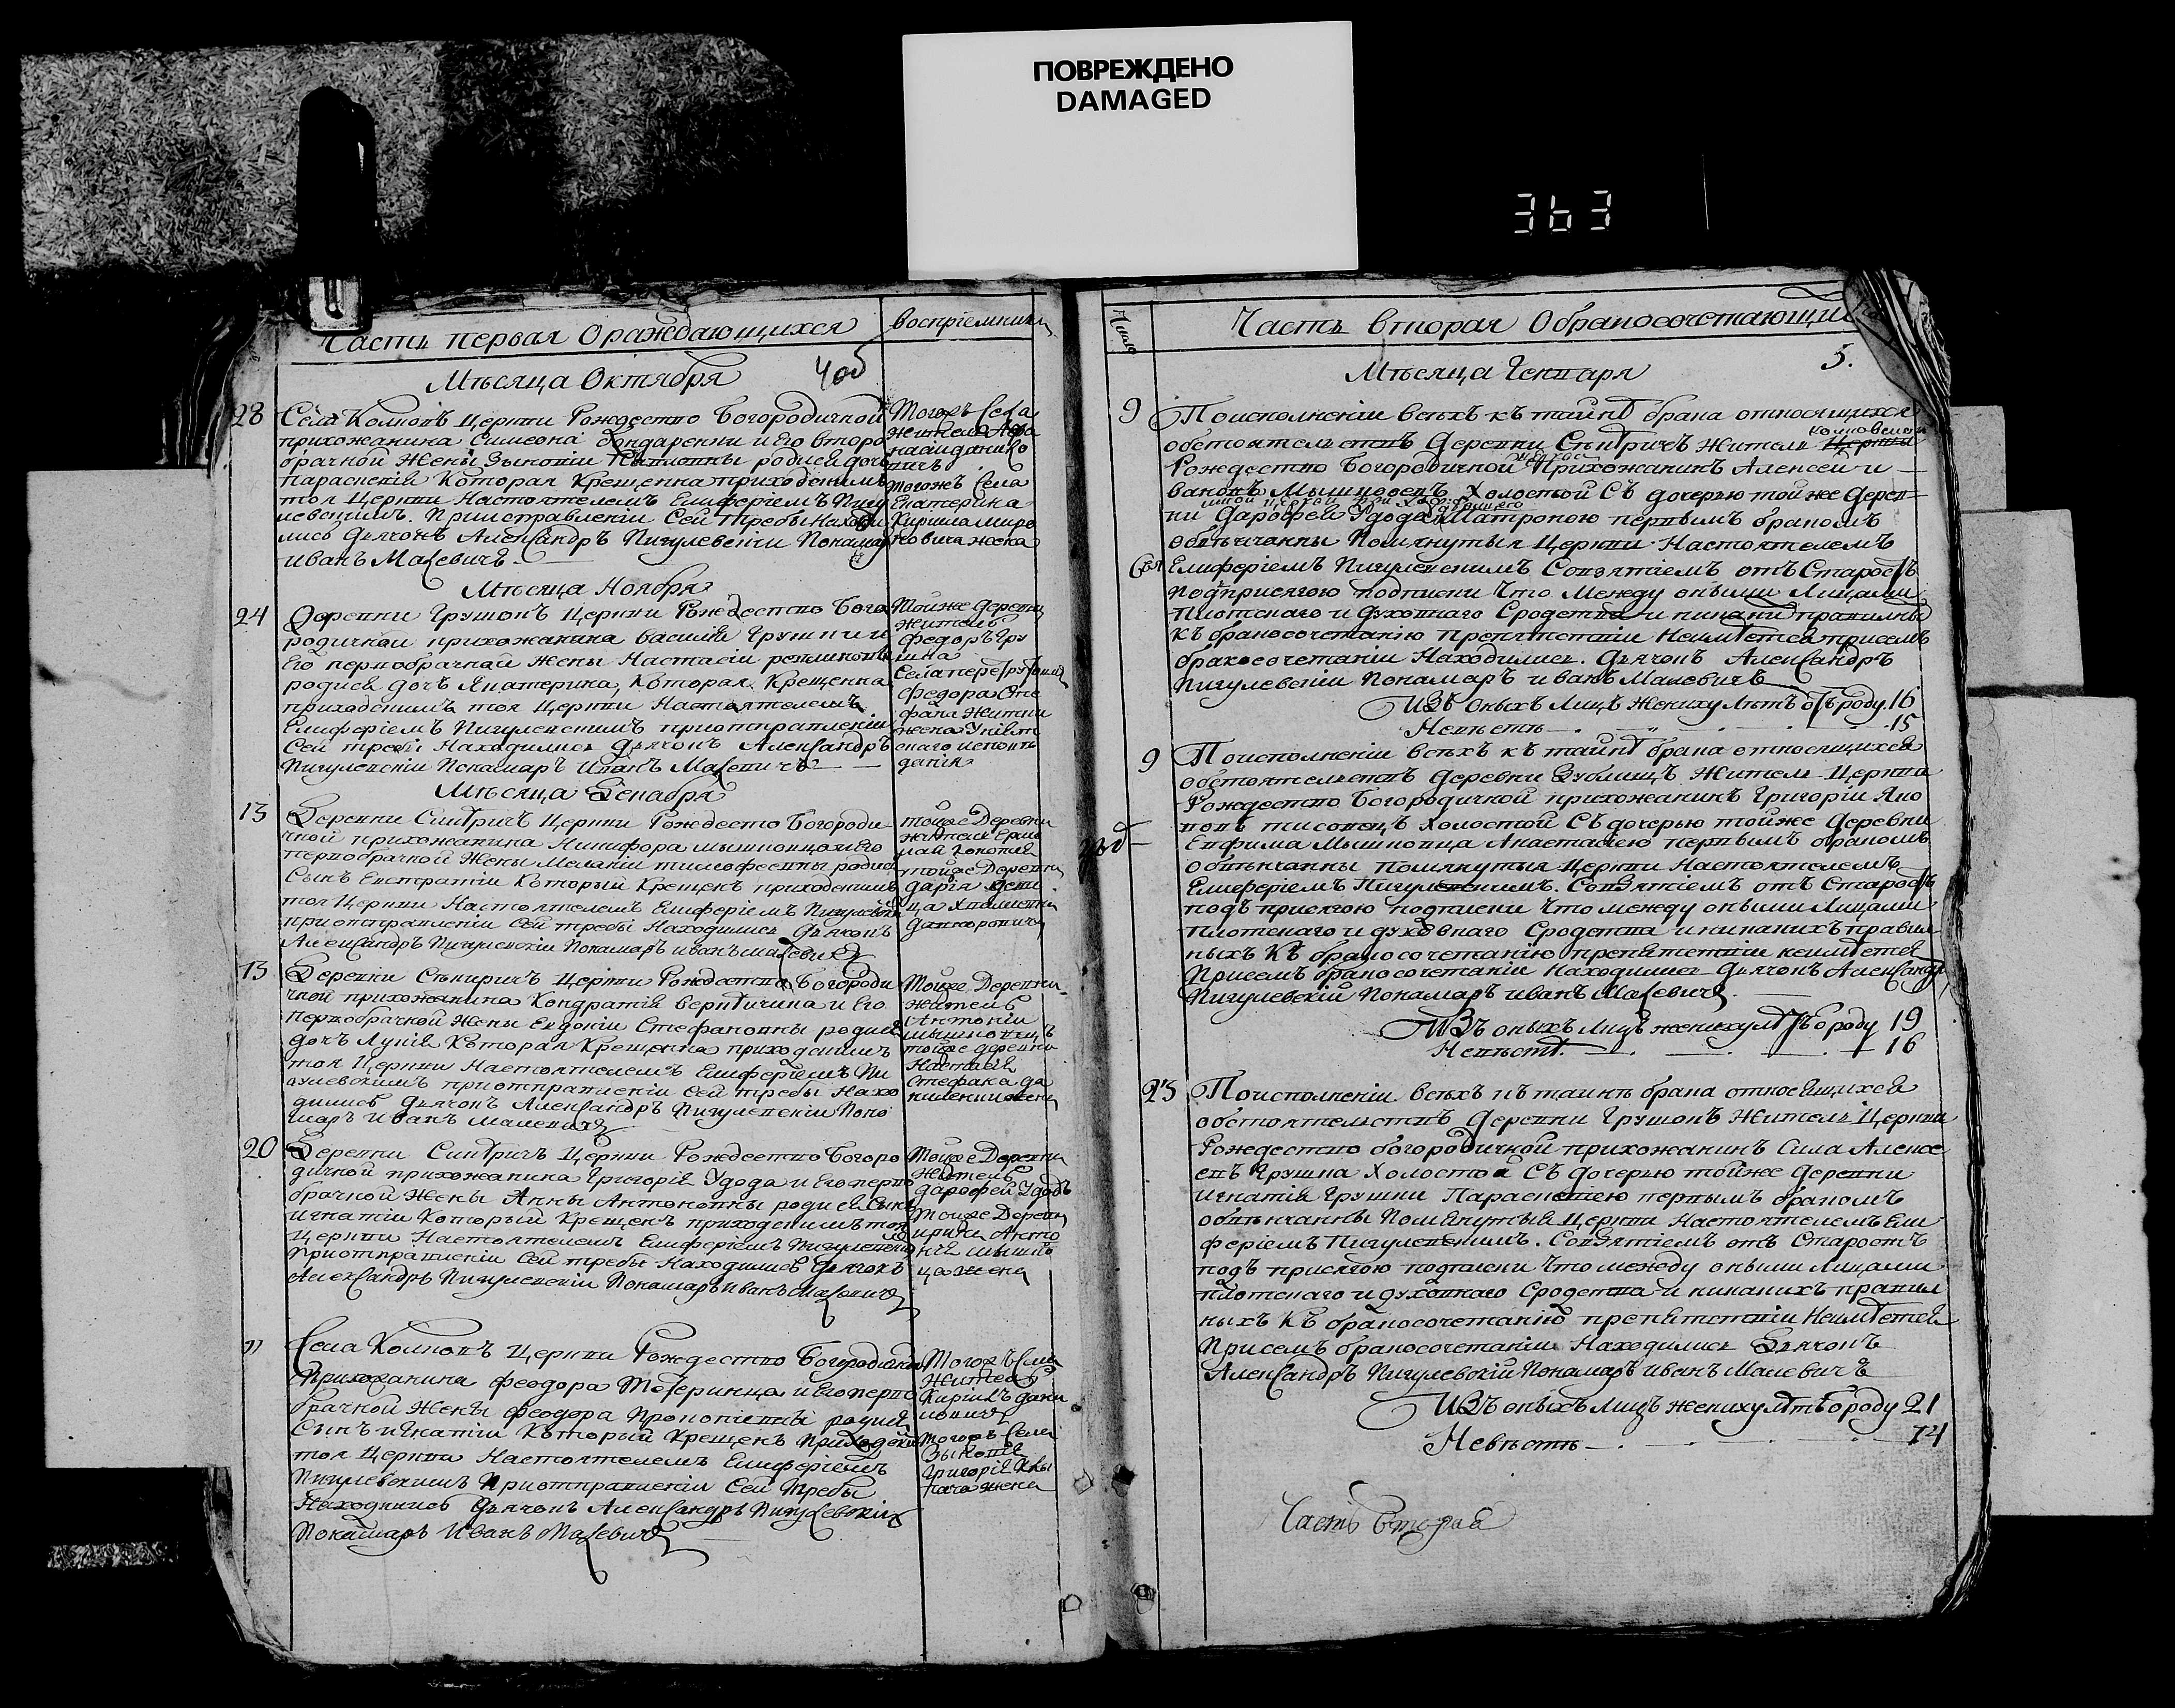 ПОВРЕЖДЕНО
DAMAGED
363
Часть первая О раждающихся
воспріемники
Мѣсяца Октября
4об
28
Села Колковъ Церкви Рождество Богородичной
прихожанина Симеона Бондаренки и его второ
брачной жены Зыновіи родися дочь
Параскевія Которая Крещенна приходскимъ
тоя Церкви Настоятелемъ Елиферіемъ Пигу
левскимъ. При исправленіи Сей требы Находи
лись Дьячокъ Александръ Пигулевскій Понамар
иванъ Малевичъ
Тогожъ Села
житель
Тогожъ Села
Екатерина
Кирила миро
новича жена
Мѣсяца Ноября
24
Деревни Грушокъ Церкви Рождество Бого
родичной прихожанина василія Грушки и
Его первобрачной жены Настасіи
родися дочъ Якатерина, Которая Крещенна
приходскимъ тоя Церкви Настоятелемъ
Елиферіемъ Пигулевскимъ приотправленіи
Сей требы Находились Дьячокъ Александръ
Пигулевскіи Понамаръ Иванъ Малевичъ
Тойже Деревни
житель
Федоръ Гру
шка
Села
федора Сте
фана
жена Уніят
скаго исповѣ
данія
Мѣсяца Декабря
13
Деревни Ситричъ Церкви Рождесто Богороди
чной прихожанина Никифора мышковца и Его
первобрачной Жены Меланіи тимофеевны родися
Сынъ Евстратіи Который Крещенъ приходскимъ
тоя Церкви Настоятелемъ Елиферіемъ Пигулевски
приотправленіи Сей требы Находились Дьячокъ
Александръ Пигулевскіи Понамаръ иванъ малевичъ
тойже Деревни
житель Ермо
лай
тойже Деревни
дарія
13
Деревни Сѣтричъ Церкви Рождество Богороди
чной прихожанина Кондратія и Его
первобрачной Жены Евдокіи Стефановны родися
дочъ Лукія Которая Крещенна приходскимъ
тоя Церкви Настоятелемъ Елиферіемъ Пи
гулевскимъ приотправленіи Сей требы Нахо
дились Дьячокъ Александръ Пигулевскіи Поно
маръ Иванъ Малевичъ
Тойже Деревни
житель
Антоніи
мышковецъ
тойже деревни
Настасія
Стефана да
нилевича жена
20
Деревни Ситричъ Церкви Рождество Богоро
дичной прихожанина Григорія Удода и Его перво
брачной Жены Анны Антоновны родися Сынъ
игнатіи Который Крещенъ приходскимъ тоя
Церкви Настоятелемъ Елиферіемъ Пигулевски
приотправленіи Сей требы Находились Дьячокъ
Александръ Пигулевскіи Понамаръ Иванъ Малевичъ
Тойже Деревни
Житель
дарофей Удодъ
Тойже Деревни
ирина Анто
нія мышков
ца жена
Села Колковъ Церкви Рождество Богородичной
Прихожанина феодора и Его перво
брачной Жены феодора Прокопіевны родися
Сынъ игнатіи Который Крещенъ приходски
тоя Церкви Настоятелемъ Елиферіемъ
Пигулевскимъ Приотправленіи Сей Требы
Находились Дьячокъ Александръ Пигулевскіи
Понамаръ Иванъ Малевичъ
Тогожъ Села
Житель
Кирилъ дани
ловичъ
Тогожъ Села
Зыновія
Григорія
жена
Число
Часть вторая О бракосочетающи
5.
Мѣсяца Генваря
9
Поисполненіи всѣхъ къ тайнѣ брака относящихся
обстоятельствъ Деревни Сѣтричъ Житель Церкви
Колковской
Рождество Богородичной Прихожанинъ Алексей и
вановъ Мышковецъ Холостой Съ дочерью тойже дерев
ни Дарофея Удода Матроною первымъ бракомъ
обвѣнчанны Помянутыя Церкви Настоятелемъ
Елиферіемъ Пигулевскимъ Совзятіемъ отъ Старостъ
подприсягою подписки Что Между оными Лицами
Плотскаго и Духовнаго Сродства и никаки правилны
къ бракосочетанію препятствіи Неимѣется присемъ
бракосочетаніи Находились. Дьячокъ Александръ
Пигулевскіи Понамаръ иванъ Малевичъ
ИЗъ оныхъ Лицъ Жениху Лѣтъ отъ роду 16
Невѣстѣ 15
9
Поисполненіи всѣхъ къ тайнѣ брака относящихся
обстоятельствъ Деревни Зублищъ Житель Церкви
Рождество Богородичной прихожанинъ Григоріи Яко
вовъ тисовецъ Холостой Съ дочерью тойже Деревни
Евфима Мышковца Анастасіею первымъ бракомъ
обвѣнчанны помянутыя Церкви Настоятелемъ
Елиферіемъ Пигулевскимъ. Совзятіемъ отъ Старостъ
подъ присягою подписки Что между оными Лицами
Плотскаго и духовнаго Сродства и никакихъ правил
ныхъ Къ бракосочетанію препятствіи неимѣется
Присемъ бракосочетаніи находились Дьячокъ Александ
Пигулевскій Понамаръ иванъ Малевичъ.
ИЗъ оныхъ Лицъ жениху лѣтъ отроду 19
Невѣстѣ. 16
25
Поисполненіи всѣхъ къ таинѣ брака относящихся
обстоятельствъ Деревни Грушокъ Житель Церкви
Рождество богородичной прихожанинъ Сила Алексе
евъ Грушка Холостой Съ дочерью тойже Деревни
игнатія Грушки Параскевіею первымъ бракомъ
обвѣнчанны Помянутыя Церкви Настоятелемъ Ели
феріемъ Пигулевскимъ. Совзятіемъ отъ Старостъ
подъ присягою подписки Что между оными лицами
плотскаго и духовнаго Сродства и никакихъ правил
ныхъ Къ бракосочетанію препятствіи Неимѣется
Присемъ бракосочетаніи Находились Дьячокъ
Александръ Пигулевскій Понамаръ иванъ Малевичъ
ИЗъ оныхъ Лицъ жениху лѣтъ отроду 21
Невѣстѣ
Часть вторая